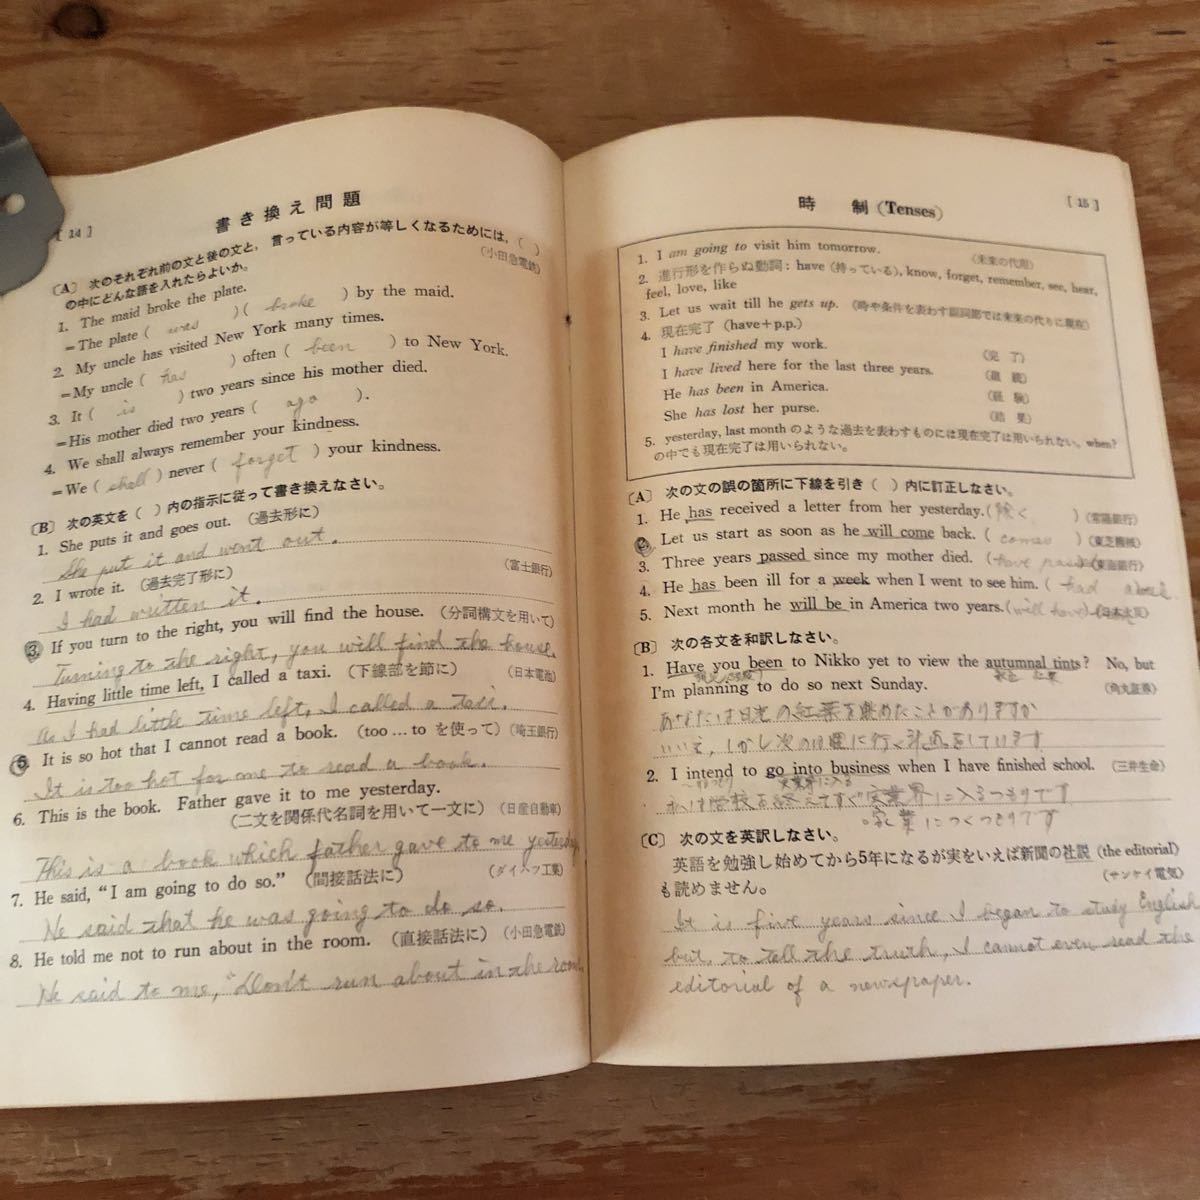 [ 14 ]
書き換え問題
〔A〕 次のそれぞれ前の文と後の文と，言っている内容が等しくなるためには，( )
の中にどんな語を入れたらよいか。 (小田急電鉄)
1. The maid broke the plate.
=The plate ( was )( broke ) by the maid.
2. My uncle has visited New York many times.
=My uncle ( has ) often ( been ) to New York.
3. It ( is ) two years since his mother died.
=His mother died two years ( ago ).
4. We shall always remember your kindness.
=We ( shall ) never ( forget ) your kindness.
〔B〕 次の英文を ( ) 内の指示に従って書き換えなさい。
1. She puts it and goes out. (過去形に)
She put it and went out. (富士銀行)
2. I wrote it. (過去完了形に)
I had written it.
3. If you turn to the right, you will find the house. (分詞構文を用いて)
Turning to the right, you will find the house.
4. Having little time left, I called a taxi. (下線部を節に) (日本電池)
As I had little time left, I called a taxi.
5. It is so hot that I cannot read a book. (too … to を使って) (埼玉銀行)
It is too hot for me to read a book.
6. This is the book. Father gave it to me yesterday.
(二文を関係代名詞を用いて一文に) (日産自動車)
This is a book which father gave to me yesterday
7. He said, “I am going to do so.” (間接話法に) (ダイハツ工業)
He said that he was going to do so.
8. He told me not to run about in the room. (直接話法に) (小田急電鉄)
He said to me, “Don't run about in the room.
時 制 (Tenses)
[ 15 ]
1. I am going to visit him tomorrow. (未来の代用)
2. 進行形を作らぬ動詞：have (持っている), know, forget, remember, see, hear,
feel, love, like
3. Let us wait till he gets up. (時や条件を表わす副詞節では未来の代りに現在)
4. 現在完了 (have+p.p.)
I have finished my work. (完 了)
I have lived here for the last three years. (継 続)
He has been in America. (経 験)
She has lost her purse. (結 果)
5. yesterday, last month のような過去を表わすものには現在完了は用いられない。when?
の中でも現在完了は用いられない。
〔A〕 次の文の誤の箇所に下線を引き ( ) 内に訂正しなさい。
1. He has received a letter from her yesterday. (除く ) (常陽銀行)
2. Let us start as soon as he will come back. ( comes ) (東芝機械)
3. Three years passed since my mother died. (have passed) (東海銀行)
4. He has been ill for a week when I went to see him. ( had
5. Next month he will be in America two years. (will have)
〔B〕 次の各文を和訳しなさい。
1. Have you been to Nikko yet to view the autumnal tints? No, but
I'm planning to do so next Sunday. (角丸証券)
あなたは日光の紅葉を眺めたことがありますか
いいえ，しかし次の日曜に行く計画をしています
2. I intend to go into business when I have finished school. (三井生命)
〜つもり 実業界に入る
私は学校を終えてすぐ実業界に入るつもりです
。家業につくつもりです
〔C〕 次の文を英訳しなさい。
英語を勉強し始めてから5年になるが実をいえば新聞の社説 (the editorial)
も読めません。 (サンケイ電気)
It is five years since I began to study English
but, to tell the truth, I cannot even read the
editorial of a newspaper.